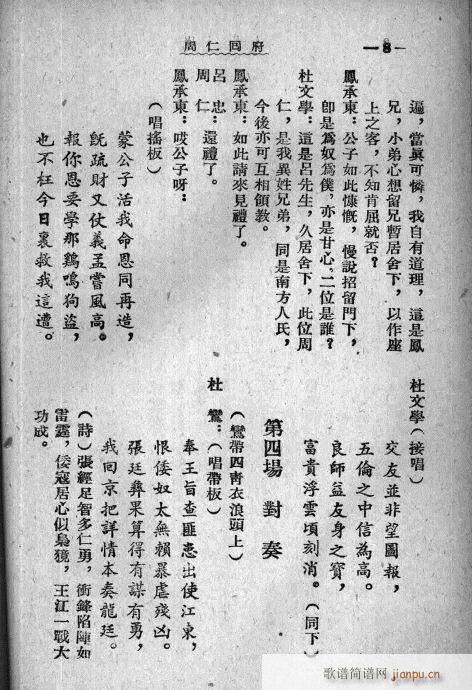 周仁回府
—8—
逼，當眞可憐，我自有道理，這是鳳
兄，小弟心想留兄暫居舍下，以作座
上之客，不知肯屈就否？
鳳承東：公子如此慷慨，慢說招留門下，
卽是爲奴爲僕，亦是甘心。二位是誰？
杜文學：這是呂先生，久居舍下，此位周
仁，是我異姓兄弟，同是南方人氏，
今後亦可互相領教。
鳳承東：如此請來見禮了。
呂忠：
周仁：還禮了。
鳳承東：哎公子呀：
（唱搖板）
蒙公子活我命恩同再造，
旣疏財又仗義孟嘗風高。
報你恩要學那鷄鳴狗盜，
也不枉今日裏救我這遭。
杜文學（接唱）
交友並非望圖報，
五倫之中信為高。
良師益友身之寶，
富貴浮雲頃刻消。（同下）
第四場　對奏
（鸞帶四靑衣浪頭上）
杜鸞：（唱帶板）
奉王旨查匪患出使江東，
恨倭奴太無賴暴虐殘凶。
張廷彝果算得有謀有勇，
我回京把詳情本奏龍廷。
（詩）張經足智多仁勇，衝鋒陷陣如
雷霆，倭寇居心似梟獍，王江一戰大
功成。
歌谱简谱网
jianpu.cn